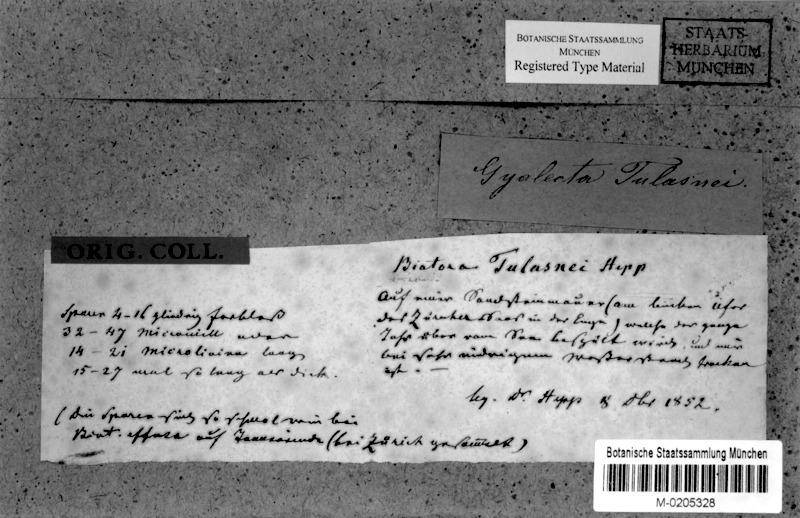 BOTANISCHE STAATSSAMMLUNG
MÜNCHEN
Registered Type Material
STAATS-
HERBARIUM
MÜNCHEN
Gyalecta Tulasnei.
ORIG. COLL.
Biatora Tulasnei Hepp
Auf einer Sandsteinmauer (am linken Ufer
des Zürcher Sees in der Enge) welche das ganze
Jahr über vom See bespült wird, und nur
bei sehr niedrigem Wasserstand trocken
ist. —
leg. Dr. Hepp 8 Dbr 1852.
Sporen 4-16 gliedrig farblos
32 - 47 Micromill oder
14 - 21 Microlinien lang
15-27 mal so lang als dick.
(Die Sporen sind so schmal wie bei
Biat. effusa auf (bei Zürich gesammelt)
Botanische Staatssammlung München
M-0205328